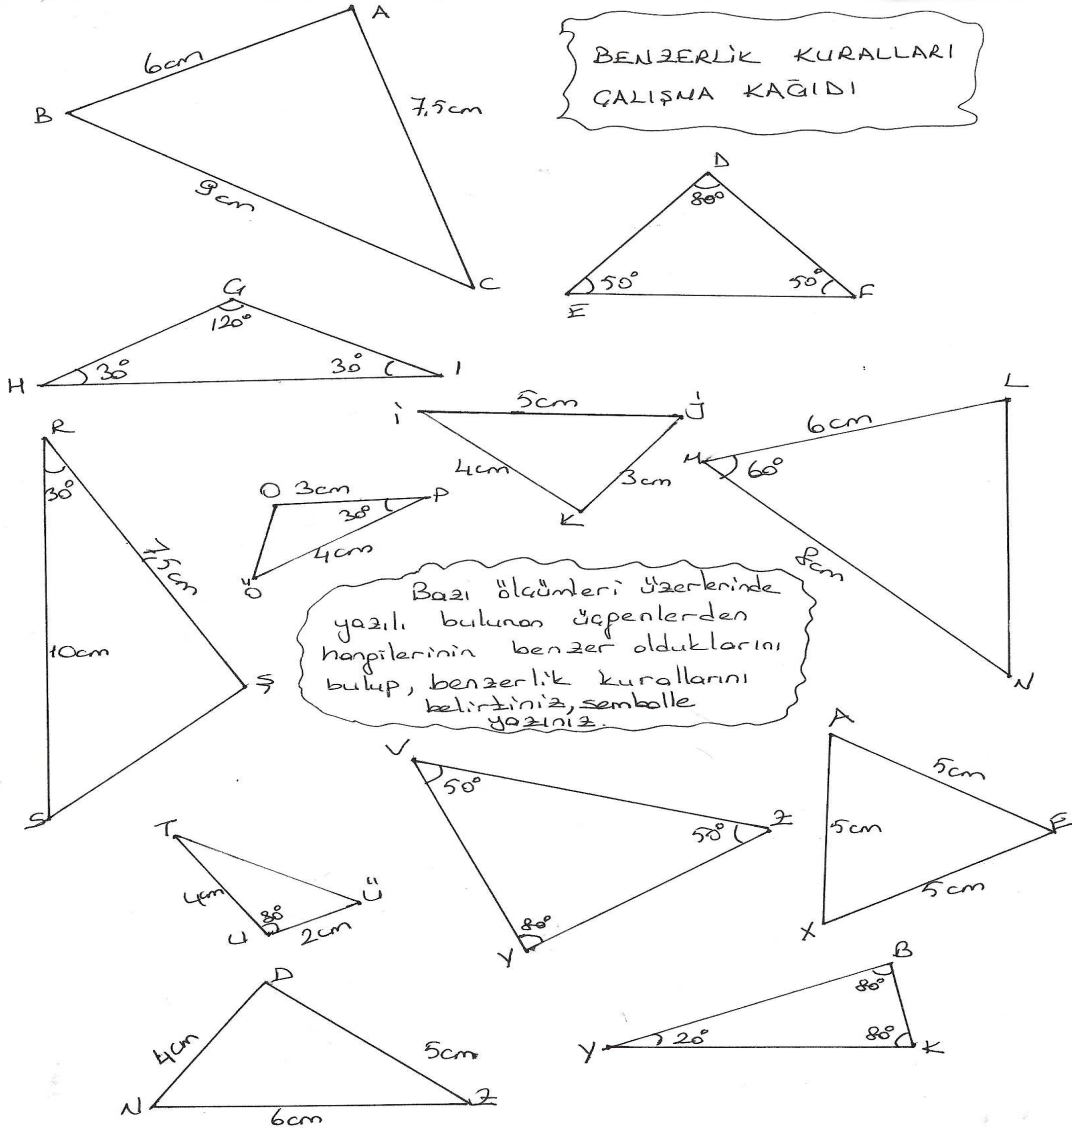 BENZERLİK KURALLARI
ÇALIŞMA KAĞIDI
A
6cm
B
7,5cm
9cm
C
D
80°
50°
50°
E
F
G
120°
H
30°
30°
I
İ
5cm
J
4cm
3cm
K
L
6cm
M
60°
8cm
N
R
30°
7,5cm
10cm
Ş
S
O
3cm
P
30°
4cm
Ö
Bazı ölçümleri üzerlerinde
yazılı bulunan üçgenlerden
hangilerinin benzer olduklarını
bulup, benzerlik kurallarını
belirtiniz, sembolle
yazınız.
V
50°
50°
Z
80°
Y
A
5cm
5cm
E
5cm
X
T
4cm
80°
Ü
U
2cm
D
4cm
5cm
N
Z
6cm
B
80°
Y
20°
80°
K